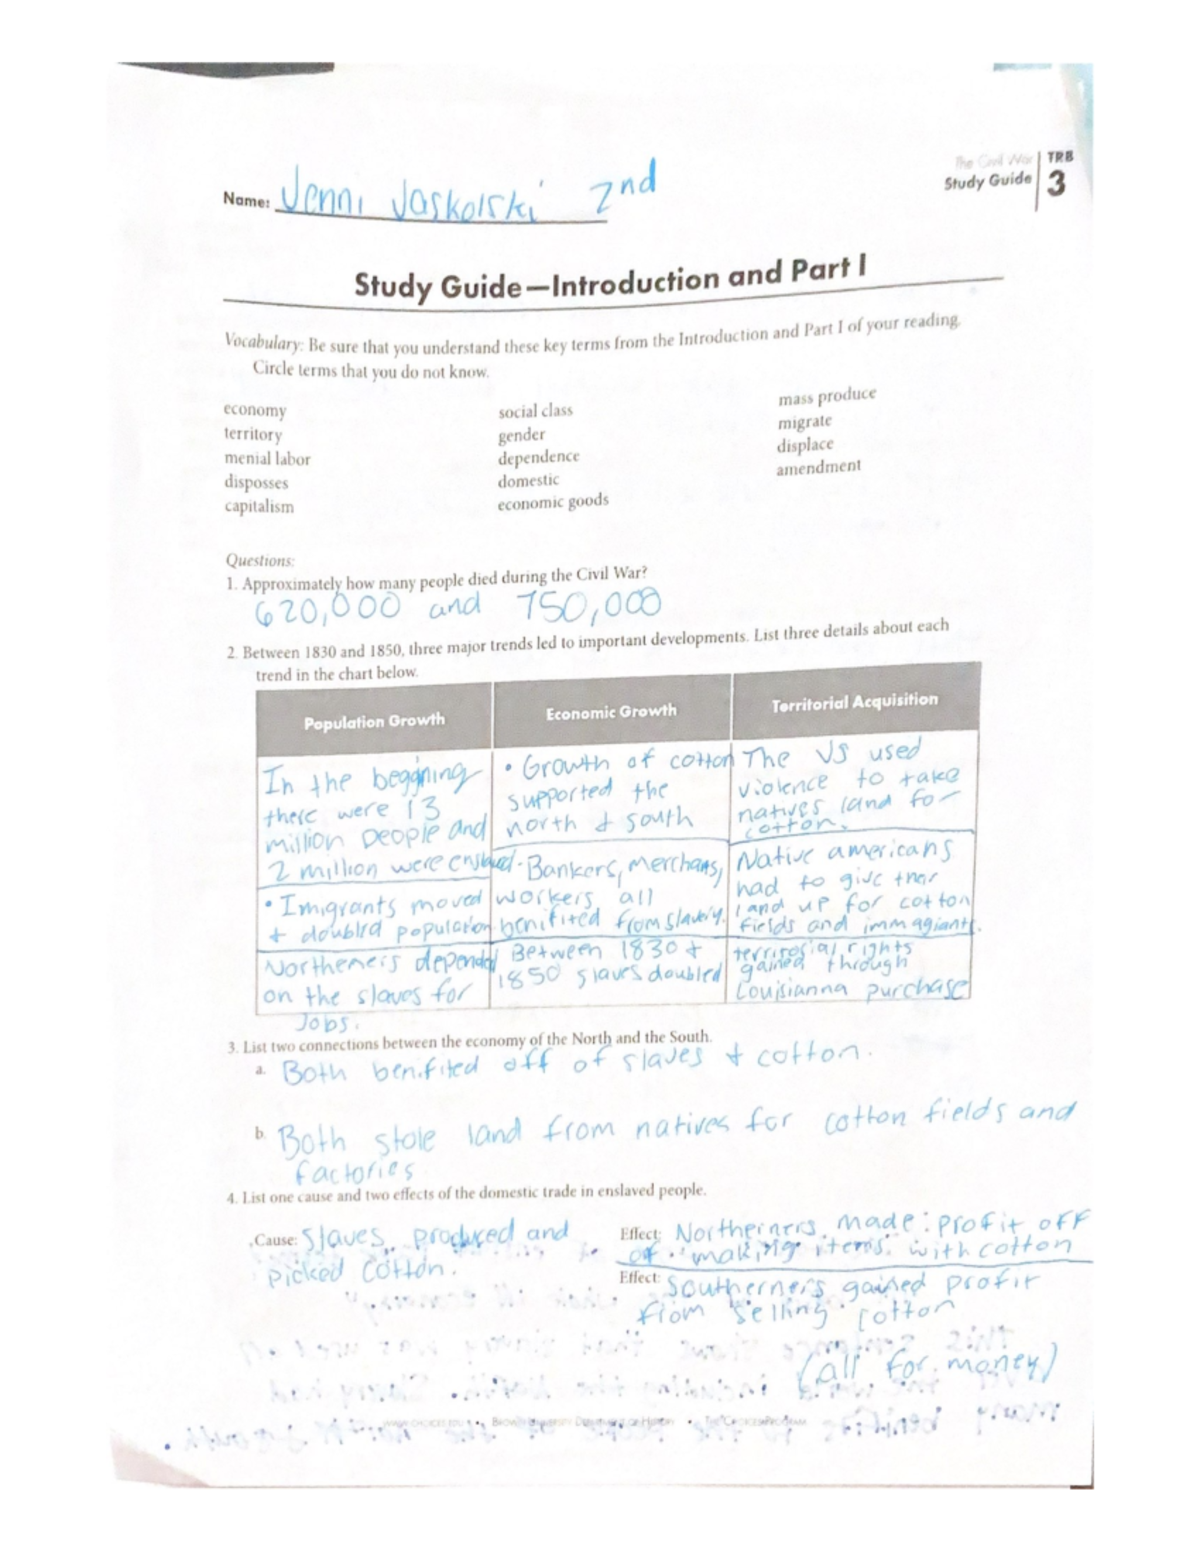 The Civil War
Study Guide
TRB
3
Name: Jenni Jaskolski 2nd
Study Guide—Introduction and Part I
Vocabulary: Be sure that you understand these key terms from the Introduction and Part I of your reading.
Circle terms that you do not know.
economy
territory
menial labor
disposses
capitalism
social class
gender
dependence
domestic
economic goods
mass produce
migrate
displace
amendment
Questions:
1. Approximately how many people died during the Civil War?
620,000 and 750,000
2. Between 1830 and 1850, three major trends led to important developments. List three details about each
trend in the chart below.
Population Growth
In the beggning
there were 13
million people and
2 million were enslaved
• Imigrants moved
+ doubled population
Northeners depended
on the slaves for
Jobs.
Economic Growth
• Growth of cotton
supported the
north + south
• Bankers, merchans,
workers, all
benifited from slavery.
Between 1830 +
1850 slaves doubled
Territorial Acquisition
The US used
violence to take
natives land for
cotton.
Native americans
had to give ther
land up for cotton
fields and immagiants.
territorial rights
gained through
Louisianna purchase
3. List two connections between the economy of the North and the South.
a. Both benifited off of slaves + cotton.
b. Both stole land from natives for cotton fields and
factories
4. List one cause and two effects of the domestic trade in enslaved people.
Cause: Slaves produced and
picked cotton.
Effect: Northerners made profit off
of making items with cotton
Effect: Southerners gained profit
from selling cotton
(all for money)